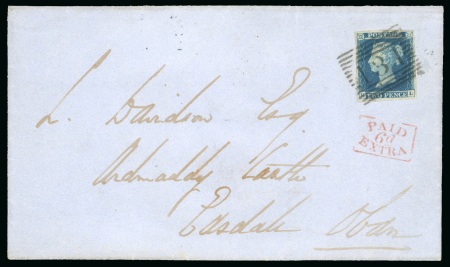 POSTAGE
131
TWO PENCE L
PAID
6d
EXTRA
L. Davidson Esq
Ardmaddy Castle
Easdale Oban